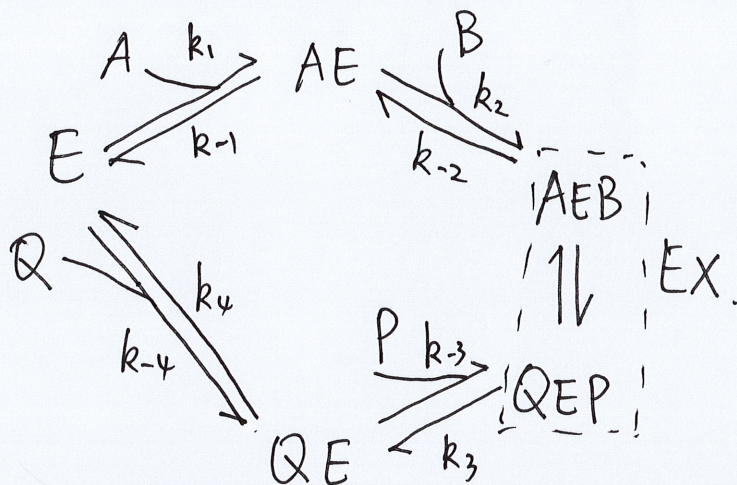 A k1 AE B
k-1 k2
E k-2
AEB
Q EX.
k4
k-4 P k-3
QEP
QE k3